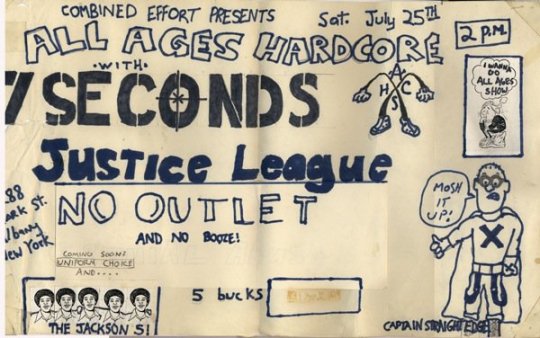 COMBINED EFFORT PRESENTS
Sat. July 25TH
ALL AGES HARDCORE
2 P.M.
•WITH•
7 SECONDS
A
H C
S
I WANNA
GO
ALL AGES
SHOW
JUSTICE LEAGUE
88
ark St.
lbany
New York
NO OUTLET
AND NO BOOZE!
MOSH
IT
UP!
X
COMING SOON?
UNIFORM CHOICE
AND....
5 bucks
THE JACKSON 5!
CAPTAIN STRAIGHT EDGE